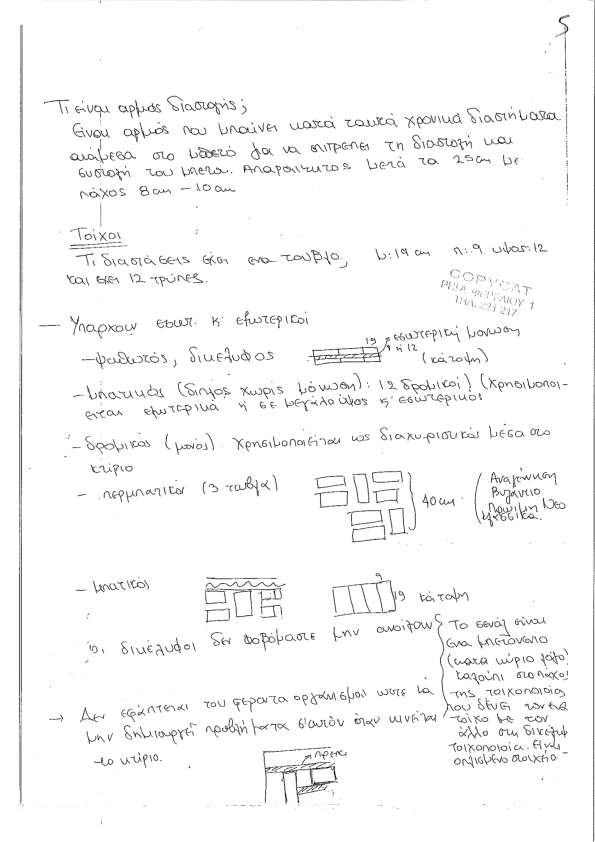 5
Τι είναι αρμός διαστολής;
Είναι αρμός που μπαίνει κατά τακτά χρονικά διαστήματα
ανάμεσα στο μπετό για να επιτρέπει τη διαστολή και
συστολή του μπετά. Απαραίτητος μετά τα 25cm με
πάχος 8cm - 10cm
Τοίχοι
Τι διαστάσεις έχει ένα τούβλο; μ:19cm π:9 υψος:12
και εχει 12 τρύπες.
COPYCAT
ΡΗΓΑ ΦΕΡΡΑΙΟΥ 1
ΤΗΛ. 221 217
— Υπαρχουν εσωτ. κ' εξωτερικοί
- ψαθωτός, δικέλυφος
19 εσωτερική μόνωση
9 ή 12
(κάτοψη)
- μπατικός (διπλός χωρίς μόνωση): 12 δρομικοί! (Χρησιμοποι-
είται εξωτερικά ή σε μεγάλο ύψος κ' εσωτερικός
- δρομικός (μονός). Χρησιμοποιείται ως διαχωριστικός μέσα στο
κτίριο
- περμπατικόν (3 τουβλα)
40cm.
Αναγέννηση
Βυζάντιο
Πρώιμη Νεο
κλασσικά.
- μπατικός
9
19 κάτοψη
Οι δικέλυφοι δεν φοβόμαστε μην ανοίξουν
Το σενάζ είναι
ένα μπετόνενιο
(κατα κύριο λόγο)
καλούπι στο πάχος
της τοιχοποιίας
που δένει τον ένα
τοίχο με τον
άλλο στη δικέλυφη
τοιχοποιία. Είναι
οπλισμένο στοιχείο
→ Δεν εφάπτεται του φέροντα οργανισμού ωστε να
μην δημιουργεί προβλήματα σ'αυτόν όταν κινείται
το κτίριο.
πρέκι